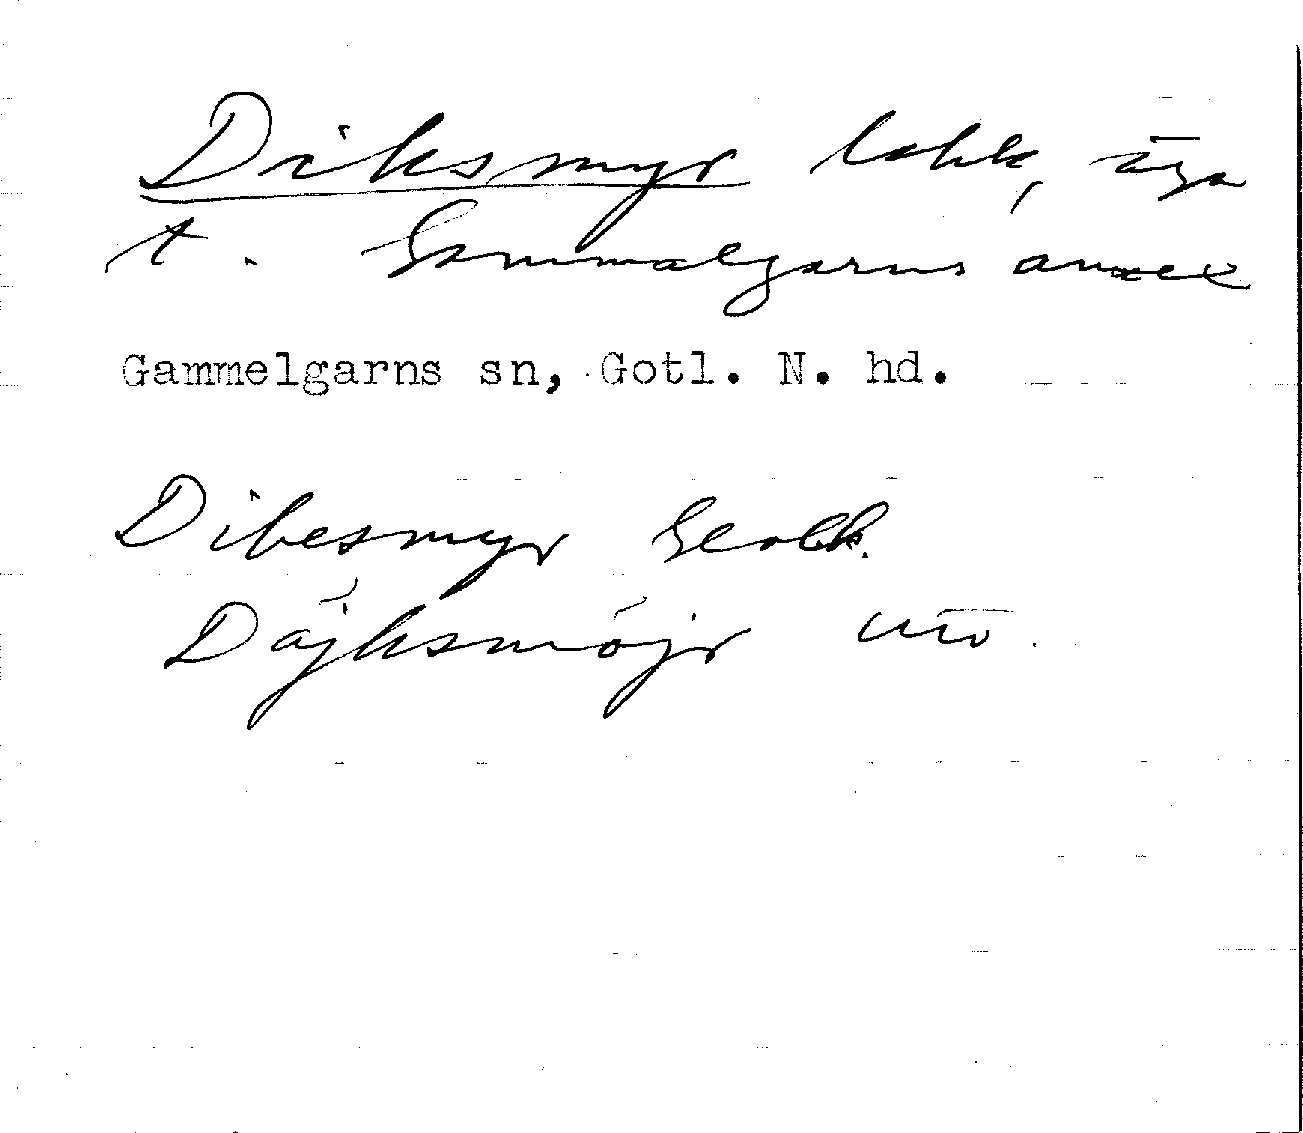 Diksmyr lokk, äga
t. Gammalgarns annex
Gammelgarns sn, Gotl. N. hd.
Dikesmyr Geolk.
Däjksmöjr